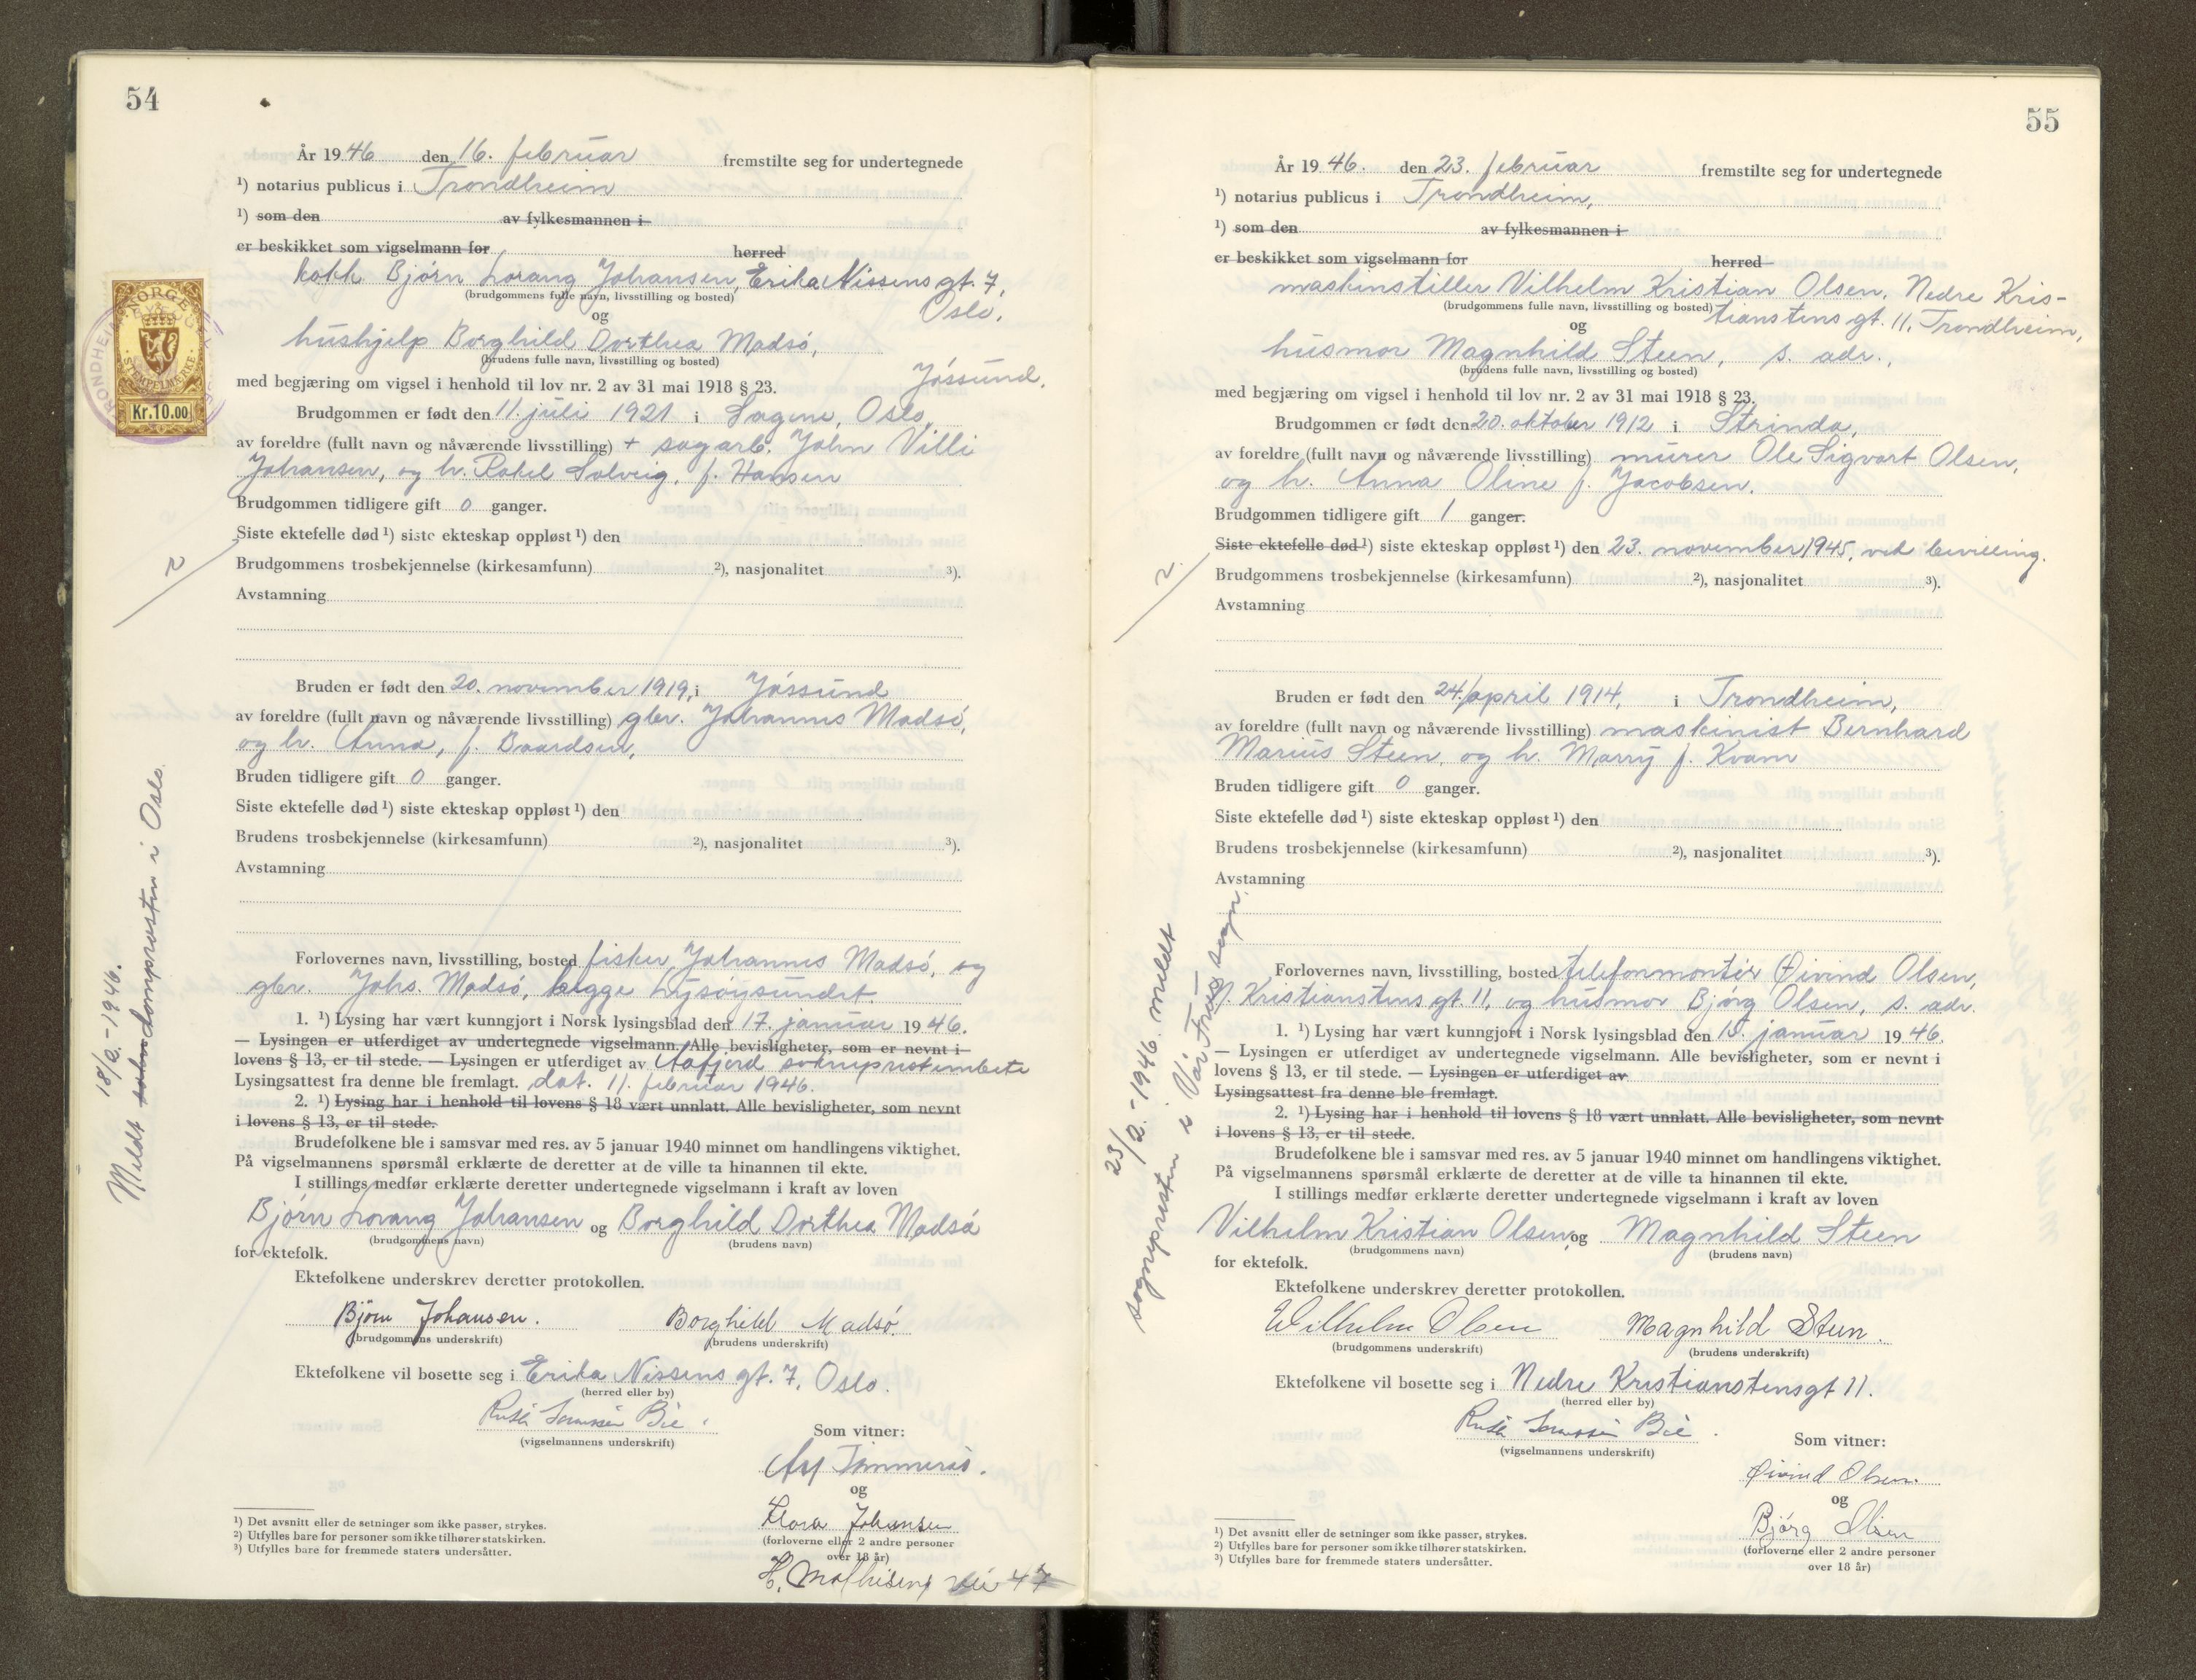 54
År 1946 den 16. februar fremstilte seg for undertegnede
¹) notarius publicus i Trondheim
¹) som den av fylkesmannen i
er beskikket som vigselmann for herred
kokk Bjørn Lorang Johansen, Erika Nissens gt. 7,
(brudgommens fulle navn, livsstilling og bosted)
Oslo.
og
hushjelp Borghild Dorthea Madsø,
(brudens fulle navn, livsstilling og bosted)
Jøssund.
med begjæring om vigsel i henhold til lov nr. 2 av 31 mai 1918 § 23.
Brudgommen er født den 11. juli 1921 i Sagene, Oslo,
av foreldre (fullt navn og nåværende livsstilling) + sagarb. John Villi
Johansen, og h. Rakel Solveig, f. Hansen
Brudgommen tidligere gift 0 ganger.
Siste ektefelle død ¹) siste ekteskap oppløst ¹) den
Brudgommens trosbekjennelse (kirkesamfunn) ²), nasjonalitet ³).
Avstamning
Bruden er født den 20. november 1919, i Jøssund
av foreldre (fullt navn og nåværende livsstilling) gbr. Johannes Madsø,
og h. Anna, f. Baardsen,
Bruden tidligere gift 0 ganger.
Siste ektefelle død ¹) siste ekteskap oppløst ¹) den
Brudens trosbekjennelse (kirkesamfunn) ²), nasjonalitet ³).
Avstamning
Forlovernes navn, livsstilling, bosted fisker Johannes Madsø, og
gbr. Johs. Madsø, begge Lysøysundet.
1. ¹) Lysing har vært kunngjort i Norsk lysingsblad den 17. januar 1946.
— Lysingen er utferdiget av undertegnede vigselmann. Alle bevisligheter, som er nevnt i
lovens § 13, er til stede. — Lysingen er utferdiget av Aafjord sokneprestembete
Lysingsattest fra denne ble fremlagt. dat. 11. februar 1946.
2. ¹) Lysing har i henhold til lovens § 18 vært unnlatt. Alle bevisligheter, som nevnt
i lovens § 13, er til stede.
Brudefolkene ble i samsvar med res. av 5 januar 1940 minnet om handlingens viktighet.
På vigselmannens spørsmål erklærte de deretter at de ville ta hinannen til ekte.
I stillings medfør erklærte deretter undertegnede vigselmann i kraft av loven
Bjørn Lorang Johansen og Borghild Dorthea Madsø
(brudgommens navn) (brudens navn)
for ektefolk.
Ektefolkene underskrev deretter protokollen.
Bjørn Johansen. Borghild Madsø.
(brudgommens underskrift) (brudens underskrift)
Ektefolkene vil bosette seg i Erika Nissens gt. 7, Oslo.
(herred eller by)
Ruth Bie
(vigselmannens underskrift)
Som vitner:
Tømmerås.
og
Klara Johansen
(forloverne eller 2 andre personer
over 18 år)
H. Mathisens vei 47
¹) Det avsnitt eller de setninger som ikke passer, strykes.
²) Utfylles bare for personer som ikke tilhører statskirken.
³) Utfylles bare for fremmede staters undersåtter.
NORGE
STEMPELMERKE
Kr.10.00
TRONDHEIM
2
18/2.-1946.
Meldt domprosten i Oslo.
55
År 1946. den 23. februar fremstilte seg for undertegnede
¹) notarius publicus i Trondheim,
¹) som den av fylkesmannen i
er beskikket som vigselmann for herred
maskinstiller Vilhelm Kristian Olsen, Nedre Kris-
(brudgommens fulle navn, livsstilling og bosted)
tianstens gt. 11, Trondheim,
og
husmor Magnhild Steen, s. adr.,
(brudens fulle navn, livsstilling og bosted)
med begjæring om vigsel i henhold til lov nr. 2 av 31 mai 1918 § 23.
Brudgommen er født den 20. oktober 1912 i Strinda,
av foreldre (fullt navn og nåværende livsstilling) murer Ole Sigvart Olsen,
og h. Anna Oline f. Jacobsen.
Brudgommen tidligere gift 1 ganger.
Siste ektefelle død ¹) siste ekteskap oppløst ¹) den 23. november 1945, ved bevilling.
Brudgommens trosbekjennelse (kirkesamfunn) ²), nasjonalitet ³).
Avstamning
Bruden er født den 24. april 1914, i Trondheim,
av foreldre (fullt navn og nåværende livsstilling) maskinist Bernhard
Marius Steen, og h. Marry f. Kvam
Bruden tidligere gift 0 ganger.
Siste ektefelle død ¹) siste ekteskap oppløst ¹) den
Brudens trosbekjennelse (kirkesamfunn) ²), nasjonalitet ³).
Avstamning
Forlovernes navn, livsstilling, bosted telefonmontør Øivind Olsen,
N. Kristianstens gt. 11, og husmor Bjørg Olsen, s. adr.
1. ¹) Lysing har vært kunngjort i Norsk lysingsblad den januar 1946.
— Lysingen er utferdiget av undertegnede vigselmann. Alle bevisligheter, som er nevnt i
lovens § 13, er til stede. — Lysingen er utferdiget av
Lysingsattest fra denne ble fremlagt.
2. ¹) Lysing har i henhold til lovens § 18 vært unnlatt. Alle bevisligheter, som nevnt
i lovens § 13, er til stede.
Brudefolkene ble i samsvar med res. av 5 januar 1940 minnet om handlingens viktighet.
På vigselmannens spørsmål erklærte de deretter at de ville ta hinannen til ekte.
I stillings medfør erklærte deretter undertegnede vigselmann i kraft av loven
Vilhelm Kristian Olsen og Magnhild Steen
(brudgommens navn) (brudens navn)
for ektefolk.
Ektefolkene underskrev deretter protokollen.
Wilhelm Olsen Magnhild Steen.
(brudgommens underskrift) (brudens underskrift)
Ektefolkene vil bosette seg i Nedre Kristianstensgt 11.
(herred eller by)
Ruth Bie
(vigselmannens underskrift)
Som vitner:
Øivind Olsen.
og
Bjørg Olsen
(forloverne eller 2 andre personer
over 18 år)
¹) Det avsnitt eller de setninger som ikke passer, strykes.
²) Utfylles bare for personer som ikke tilhører statskirken.
³) Utfylles bare for fremmede staters undersåtter.
2.
23/2.-1946. meldt
sognepresten i Vår Frues sogn.